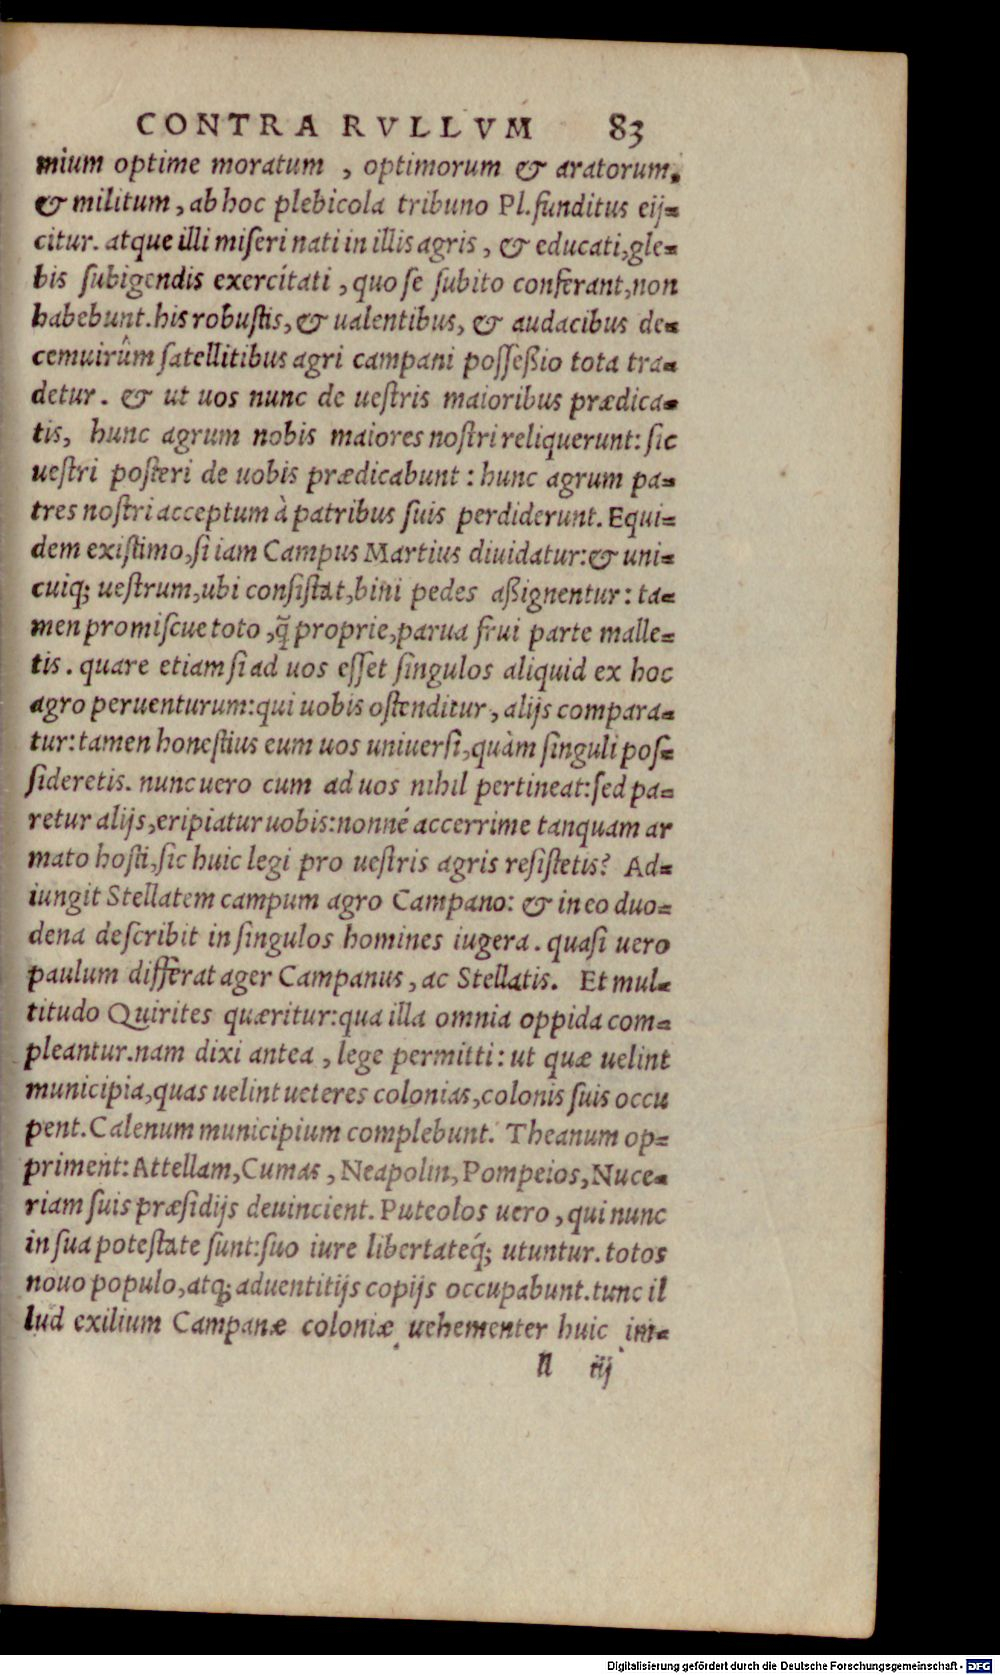 CONTRA RVLLVM 83
mium optime moratum , optimorum & aratorum,
& militum, ab hoc plebicola tribuno Pl. funditus eij=
citur. atque illi miseri nati in illis agris, & educati, gle=
bis subigendis exercitati, quo se subito conferant, non
habebunt. his robustis, & ualentibus, & audacibus de=
cemuirûm satellitibus agri campani posseßio tota tra=
detur. & ut uos nunc de uestris maioribus prædica=
tis, hunc agrum nobis maiores nostri reliquerunt: sic
uestri posteri de uobis prædicabunt: hunc agrum pa=
tres nostri acceptum à patribus suis perdiderunt. Equi=
dem existimo, si iam Campus Martius diuidatur: & uni=
cuiq; uestrum, ubi consistat, bini pedes aßignentur: ta=
men promiscue toto, q̃ proprie, parua frui parte malle=
tis. quare etiam si ad uos esset singulos aliquid ex hoc
agro peruenturum: qui uobis ostenditur, alijs compara=
tur: tamen honestius eum uos uniuersi, quàm singuli pos=
sideretis. nunc uero cum ad uos nihil pertineat: sed pa=
retur alijs, eripiatur uobis: nonné accerrime tanquam ar
mato hosti, sic huic legi pro uestris agris resistetis? Ad=
iungit Stellatem campum agro Campano: & in eo duo=
dena describit in singulos homines iugera. quasi uero
paulum differat ager Campanus, ac Stellatis. Et mul=
titudo Quirites quæritur: qua illa omnia oppida com=
pleantur. nam dixi antea, lege permitti: ut quæ uelint
municipia, quas uelint ueteres colonias, colonis suis occu
pent. Calenum municipium complebunt. Theanum op=
priment: Attellam, Cumas, Neapolin, Pompeios, Nuce=
riam suis præsidijs deuincient. Puteolos uero, qui nunc
in sua potestate sunt: suo iure libertateq́; utuntur. totos
nouo populo, atq; aduentitijs copijs occupabunt. tunc il
lud exilium Campanæ coloniæ uehementer huic im=
n iij
Digitalisierung gefördert durch die Deutsche Forschungsgemeinschaft - DFG